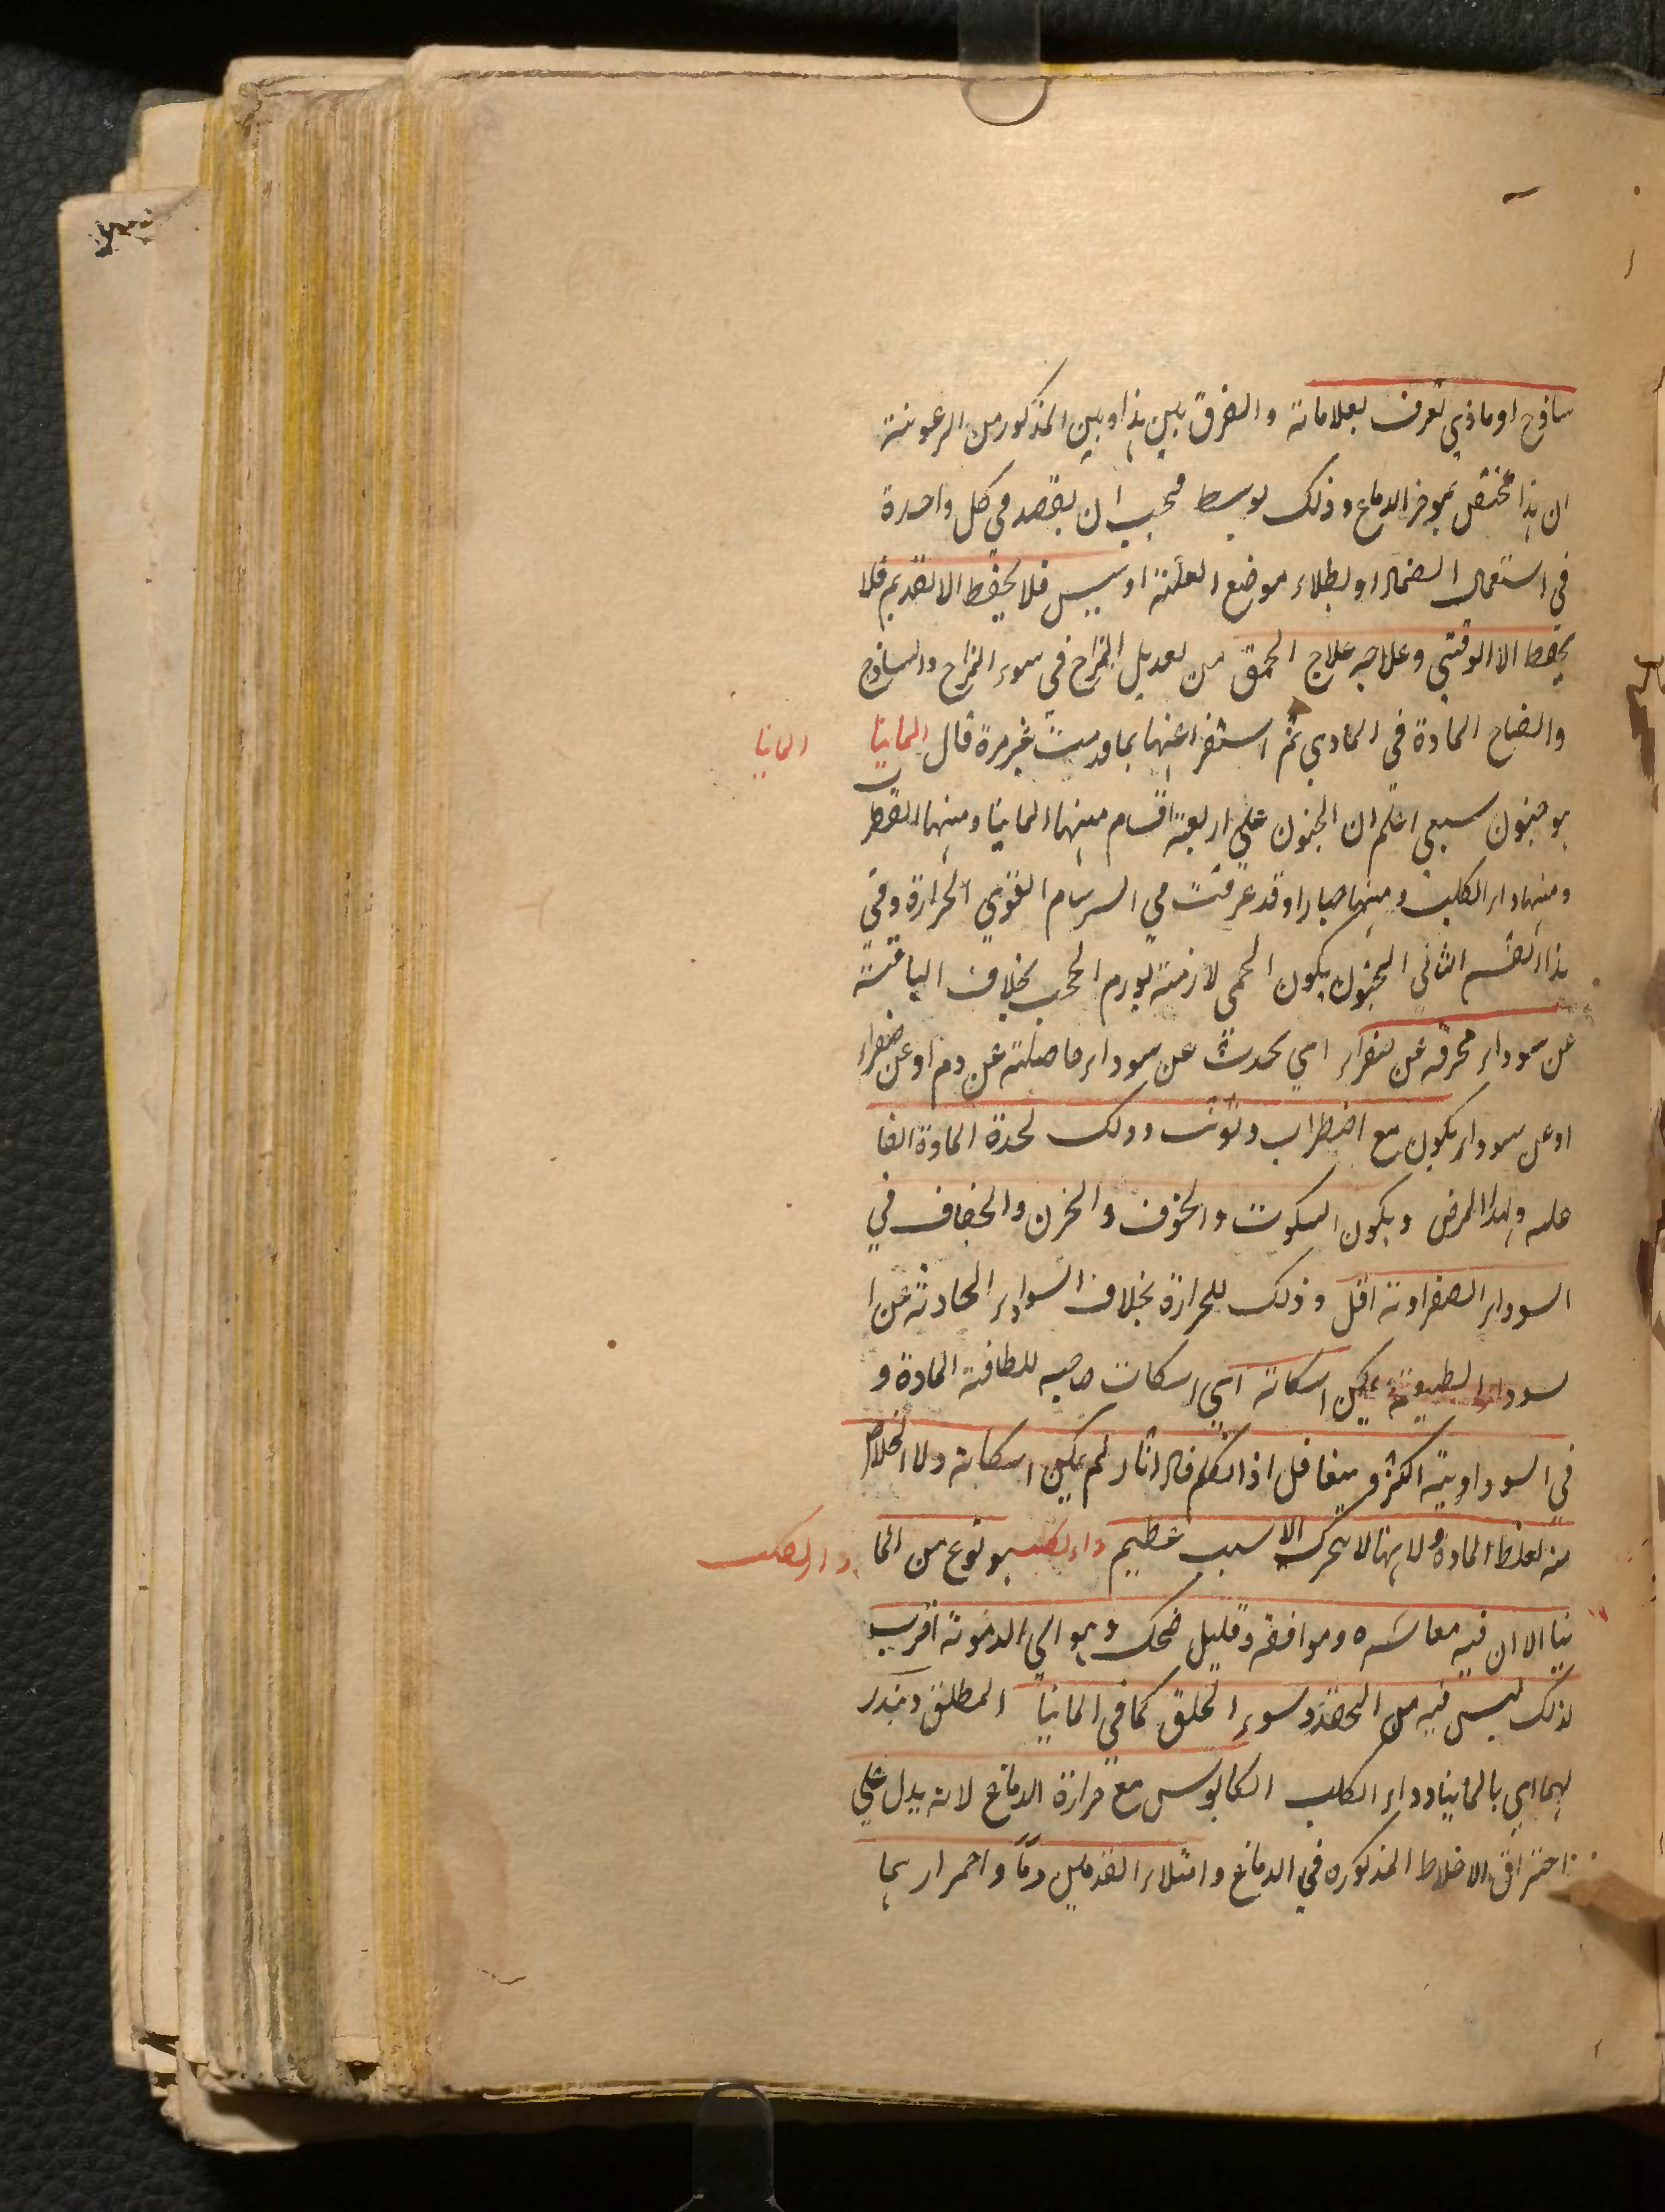 ساذج او ماذي تعرف بعلاماته والفرق بين هذا وبين المذكور من الرعونة
ان هذا مختص بموخر الدماغ وذلك بوسط فيجب ان يقصد في كل واحدة
في استعمال الضماد او بطلاء موضع العلة او يبس فلا يحفظ الا القديم فلا
يحفظ الا الوقتي وعلاجه علاج الحمق من تعديل المزاج في سوء المزاج والساذج
وانضاج المادة في المادي ثم استفراغها بما قدمت غير مرة قال المانيا
المانيا
هو جنون سبعي اعلم ان الجنون علي اربعة اقسام منها المانيا ومنها القطر
ومنها داء الكلب ومنها صبارا وقد عرفت في السرسام القوي الحرارة وفي
هذا القسم الثاني الجنون يكون الحمى لازمة لورم الحجب بخلاف الباقية
عن سوداء محرقة عن صفراء اي يحدث عن سوداء حاصلة عن دم او عن صفراء
او عن سوداء يكون مع اضطراب وتوثب وذلك لحدة المادة الفا
علة ولهذا المرض ويكون السكوت والخوف والحزن والخفاف في
السوداء الصفراوية اقل وذلك للحرارة بخلاف السوداء الحادثة عن ا
لسوداء الطبيعية يمكن اسكاته اي اسكات صاحبه للطافة المادة و
في السوداوية اكثر ويتغافل اذا تكلم فاذا ثار لم يمكن اسكاته ولا الخلاص
منه لغلظ المادة ولانها لا تتحرك الا لسبب عظيم داء الكلب هو نوع من الما
داء الكلب
نيا الا ان فيه معاشرة وموافقة وقليل ضحك وهو الي الدموية اقرب
لذلك ليس فيه من الحقد وسوء الخلق كما في المانيا المطلق وينذر
بهما اي بالمانيا وداء الكلب الكابوس مع حرارة الدماغ لانه يدل علي
احتراق الاخلاط المذكورة في الدماغ وامتلاء القدمين دما واحمرارهما